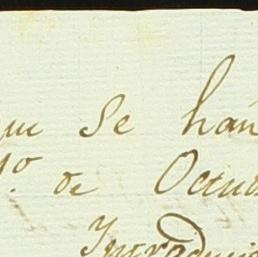 que se han
1.º de Octu
Introduci